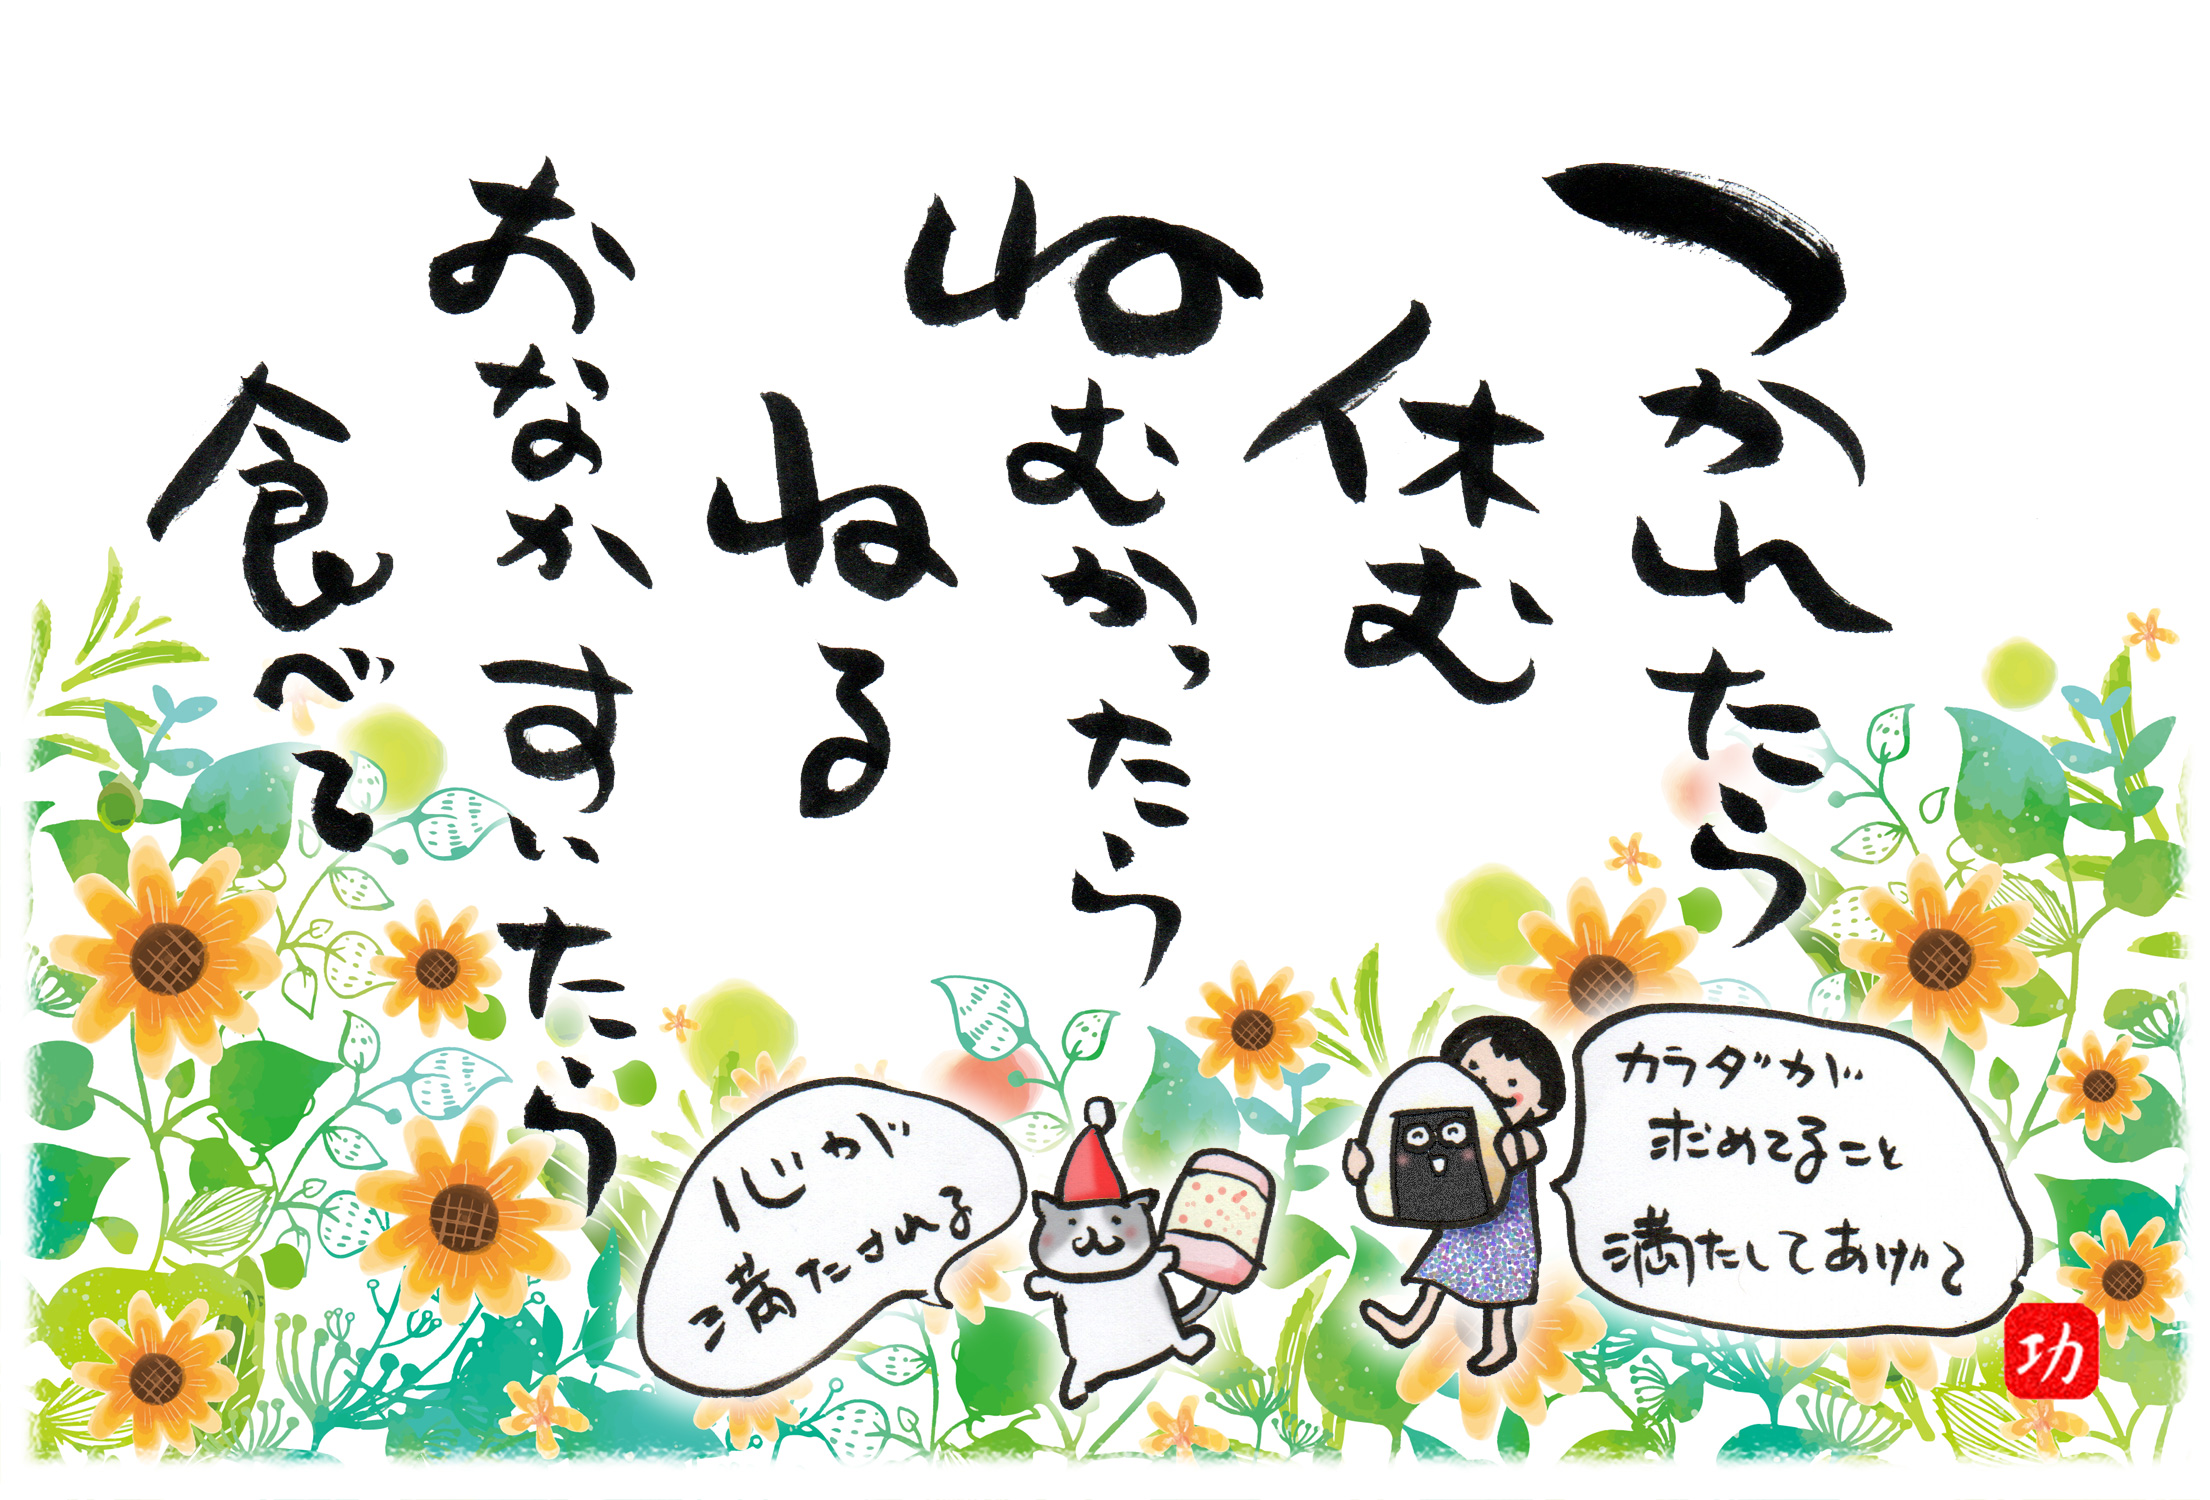 つかれたら
休む
ねむかったら
ねる
おなかすいたら
食べて
カラダが
求めてること
満たしてあげて
心が
満たされる
功